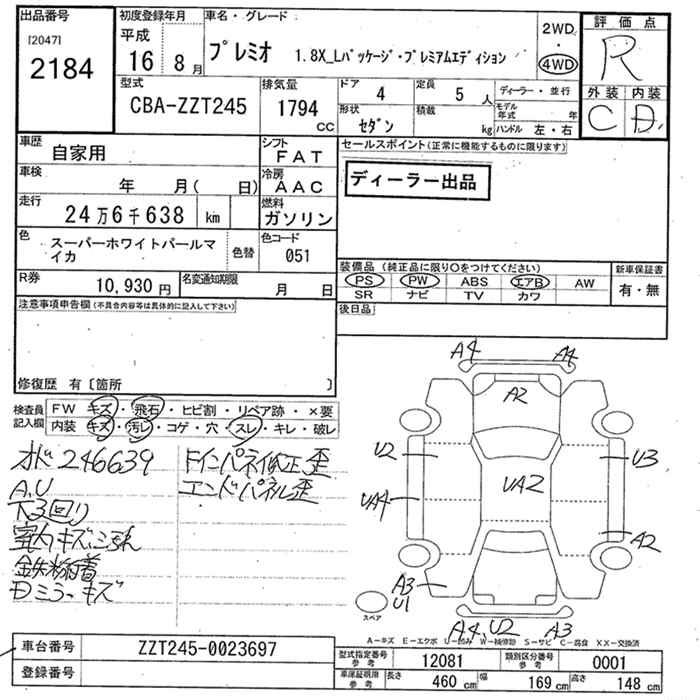 出品番号
[2047]
2184
初度登録年月
平成
16 8月
車名・グレード
プレミオ 1.8X_Lパッケージ・プレミアムエディション
2WD
・
4WD
評価点
R
外装 内装
C D
型式
CBA-ZZT245
排気量
1794
cc
ドア 4
定員 5 人
形状 セダン
積載 kg
ディーラー・並行
モデル年式 年
ハンドル 左・右
車歴 自家用
シフト
FAT
車検 年 月( 日)
冷房
AAC
走行 24万6千638 km
燃料
ガソリン
色 スーパーホワイトパールマイカ
色替
色コード
051
R券 10,930円
名変通知期限 月 日
セールスポイント(正常に機能するものに限ります)
ディーラー出品
装備品(純正品に限り〇をつけてください)
PS PW ABS エアB AW
SR ナビ TV カワ
新車保証書
有・無
後日品
注意事項申告欄(不具合内容等は具体的に記入して下さい)
修復歴 有〔箇所 〕
検査員記入欄
FW キズ・飛石・ヒビ割・リペア跡・×要
内装 キズ・汚レ・コゲ・穴・スレ・キレ・破レ
オド246639
A,U
下3回り
室内キズ汚れ
鉄粉付着
Dミラーキズ
ドインパネ修正歪
エンドパネル歪
A4 A4
A2
U2 U3
UA4 UA2
A2
A3
U1
スペア
A4,U2 A3
A-キズ E-エクボ U-凹み W-補修跡 S-サビ C-腐食 XX-交換済
車台番号 ZZT245-0023697
登録番号
型式指定番号 参考 12081
類別区分番号 参考 0001
車庫証明用 参考 長さ 460cm 幅 169cm 高さ 148cm